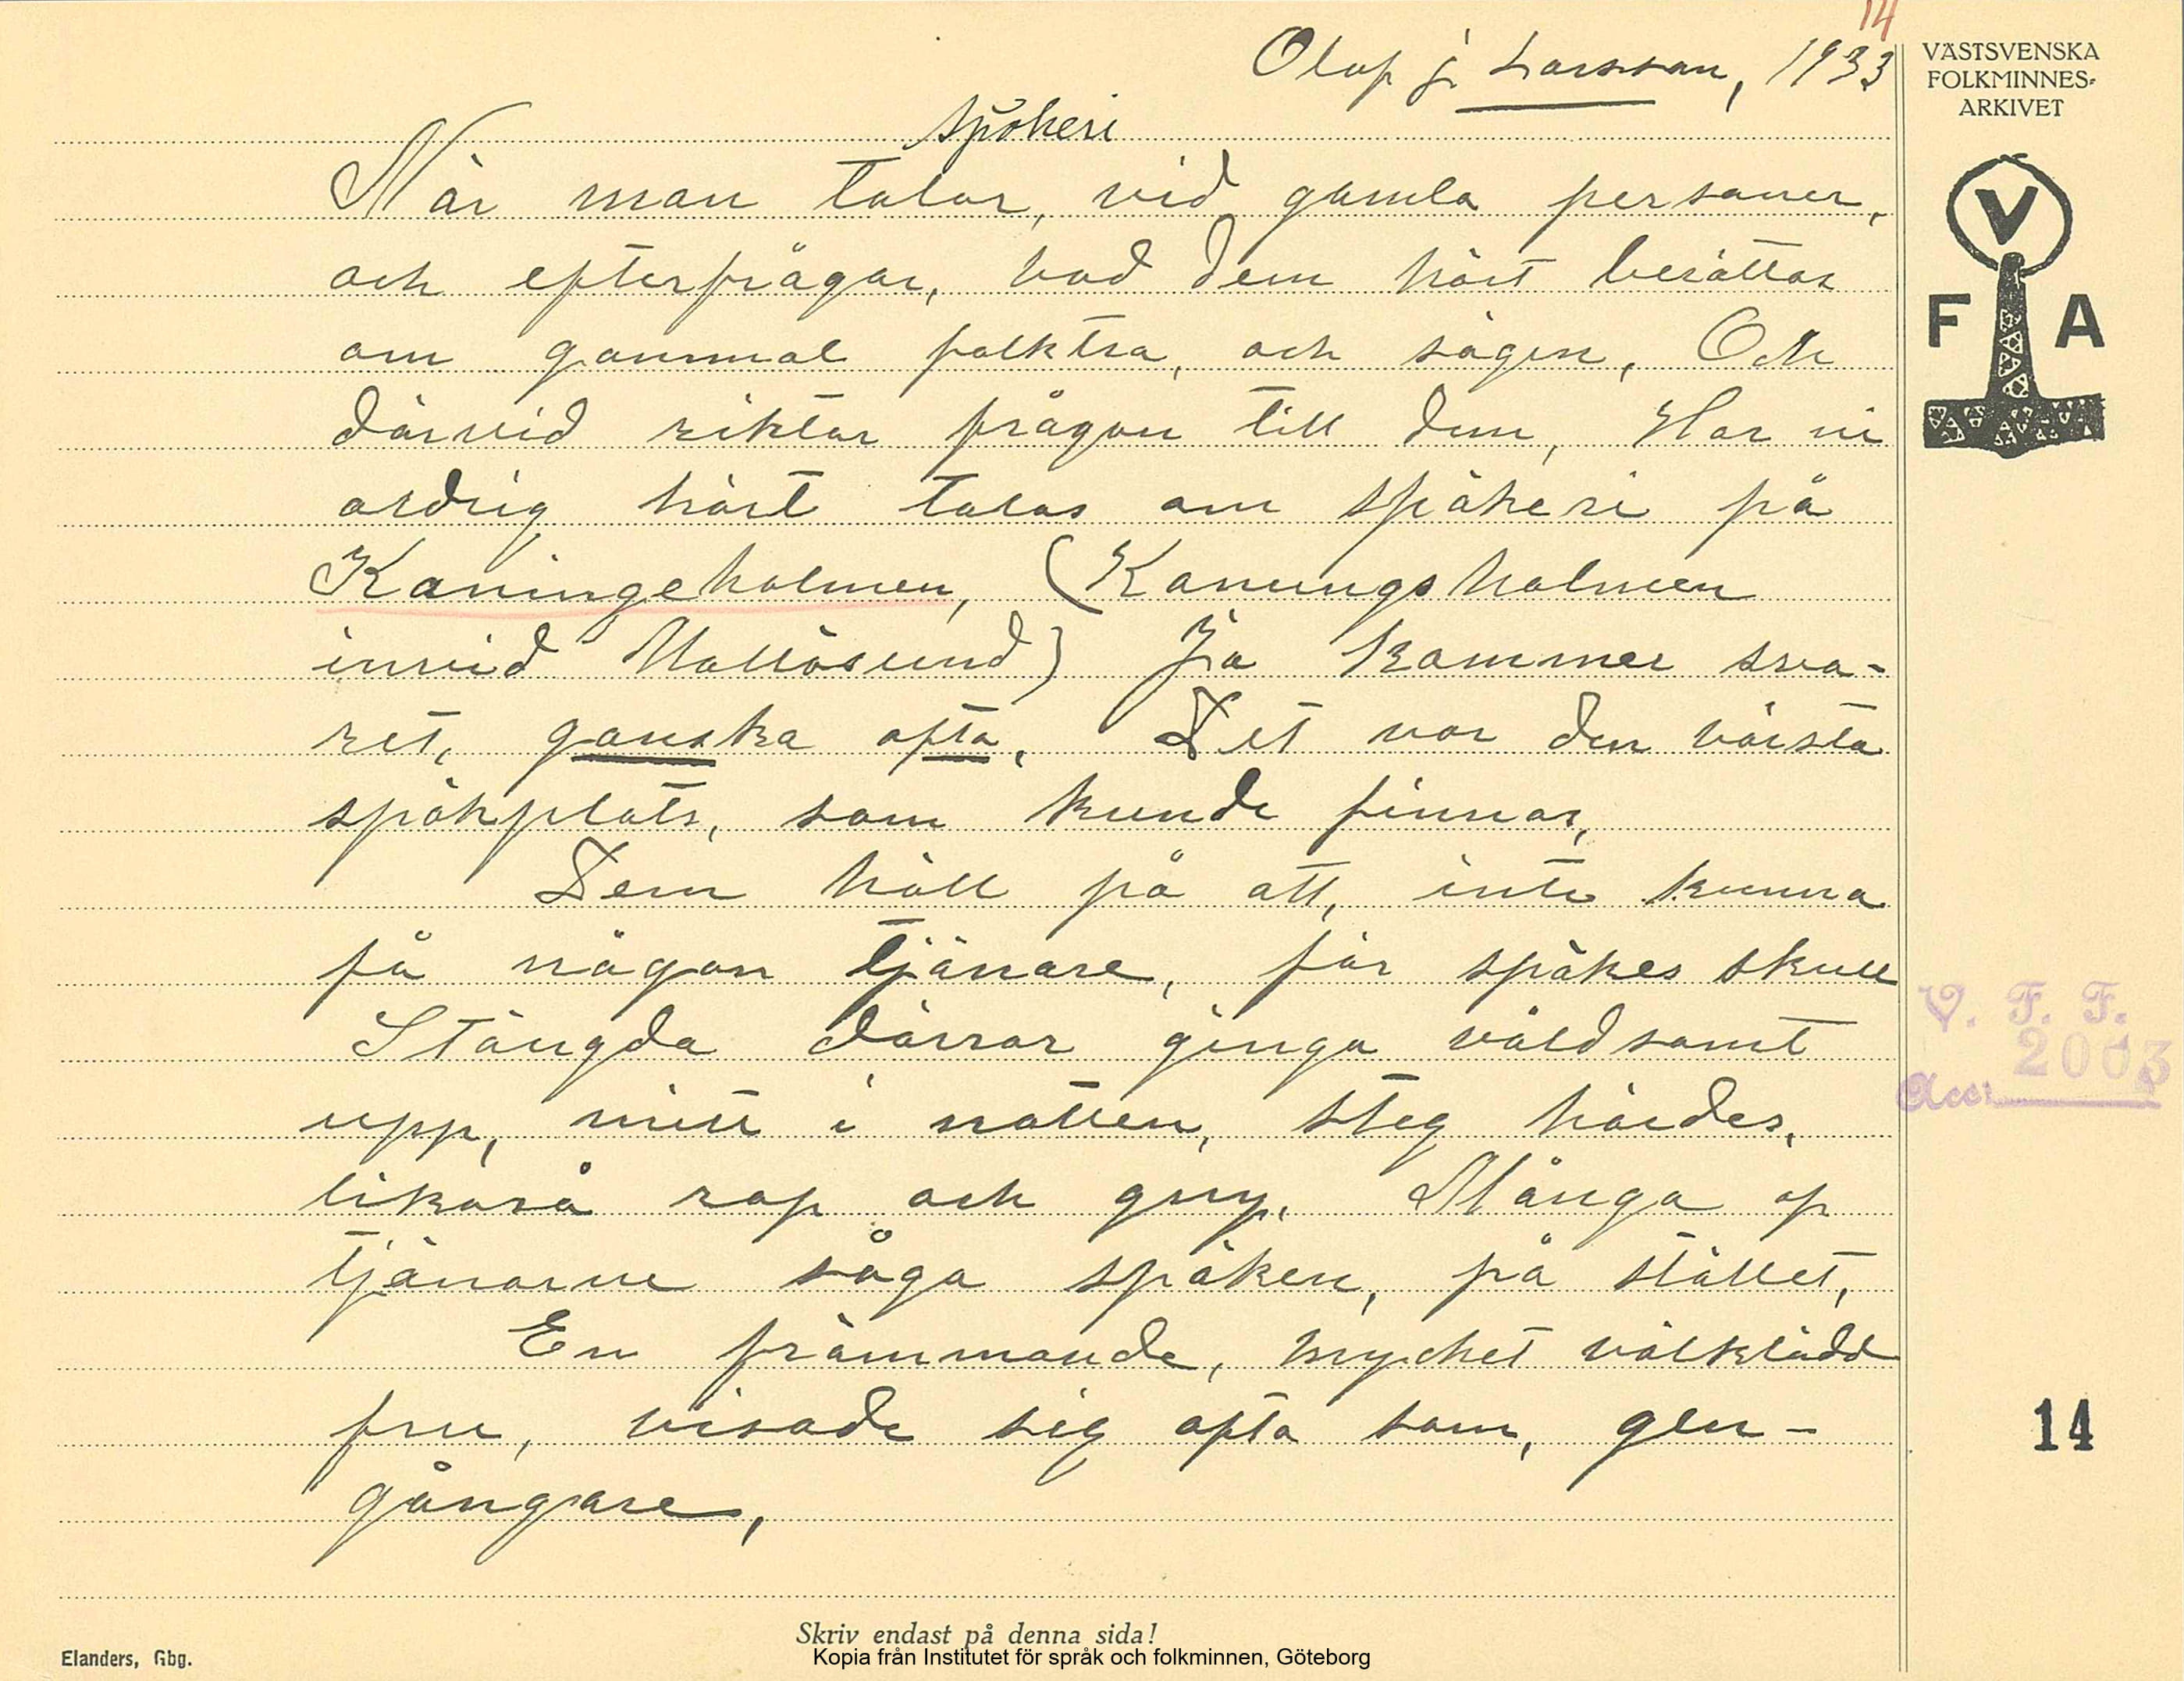 14
Olof J. Larsson, 1933
VÄSTSVENSKA
FOLKMINNES-
ARKIVET
V
F A
Spökeri
När man talar, vid gamla personer,
och efterfrågar, vad dem hört berättas
om gammal folktra, och sägen, Och
därvid riktar frågan till dem, Har ni
aldrig hört talas om spökeri på
Kaningeholmen, (Konungsholmen
invid Mollösund) Ja kommer sva-
ret, ganska ofta, Det var den värsta
spökplats, som kunde finnas,
Dem höll på att, inte kunna
få någon tjänare, för spökes skull
Stängda dörrar ginga våldsamt
upp, mitt i natten, steg hördes,
likaså rop och gny, Många af
tjänarne såga spöken, på stället,
En främmande, mycket välklädd
fru, visade sig ofta som, gen-
gångare,
V. F. F.
2003
Acc:
14
Skriv endast på denna sida!
Elanders, Gbg.
Kopia från Institutet för språk och folkminnen, Göteborg